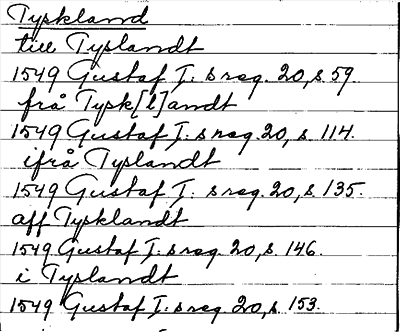 Tyskland
till Tyslandt
1549 Gustaf I: s reg. 20, s. 59.
frå Tysk[l]andt
1549 Gustaf I: s reg. 20, s. 114.
ifrå Tyslandt
1549 Gustaf I: s reg. 20, s. 135.
aff Tysklandt
1549 Gustaf I: s reg. 20, s. 146.
i Tyslandt
1549 Gustaf I: s reg. 20, s. 153.